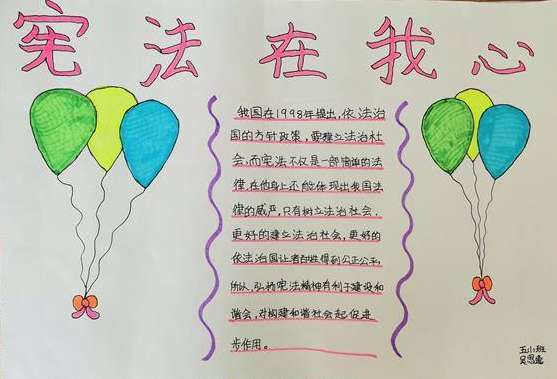 宪法在我心
我国在1998年提出,依法治
国的方针政策,要建立法治社
会,而宪法不仅是一部简单的法
律,在他身上还能体现出我国法
律的威严,只有树立法治社会,
更好的建立法治社会,更好的
依法治国让老百姓得到公正公平,
所以,弘扬宪法精神有利于建设和
谐会,对构建和谐社会起促进
步作用。
五(1)班
吴思逸